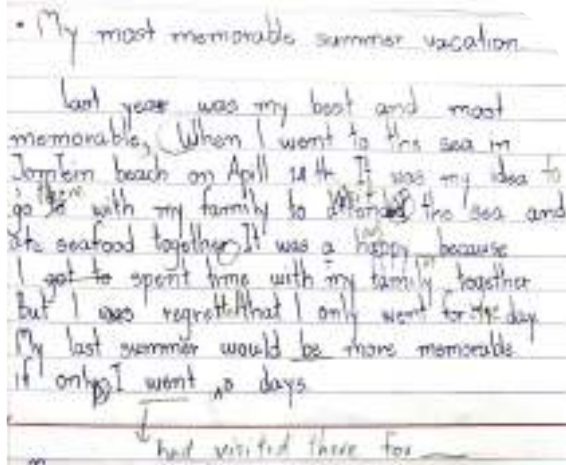 • My most memorable summer vacation
last year was my best and most
memorable, When I went to the sea in
Jomtein beach on Aprill 14th. It was my idea to
go there with my family to the sea and
ate seafood together. It was a happy because
I got to spent time with my family together
But I was regret that I only went for day
My last summer would be more memorable
if only I went days
had visited there for